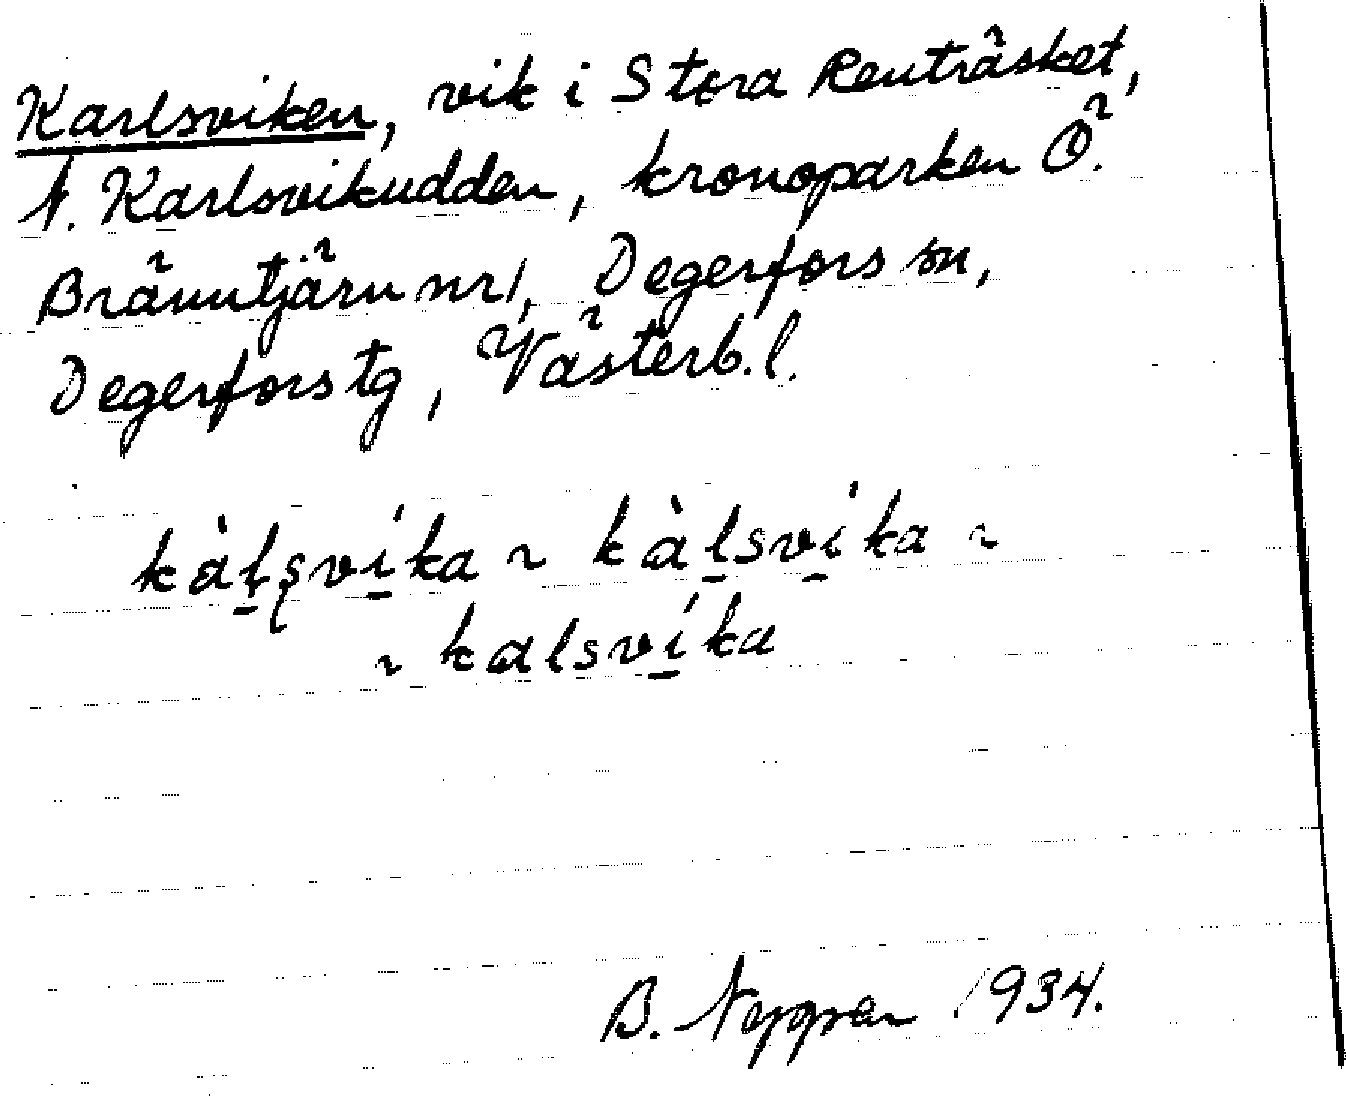 Karlsviken, vik i Stora Renträsket,
N. Karlsvikudden, kronoparken Ö.
Bränntjärn nr 1, Degerfors sn,
Degerfors tg, Västerb. l.
kàḷṣvi̱ka ~ kàḷsvi̱ka ~
~ kalsvi̱ka
B. 1934.